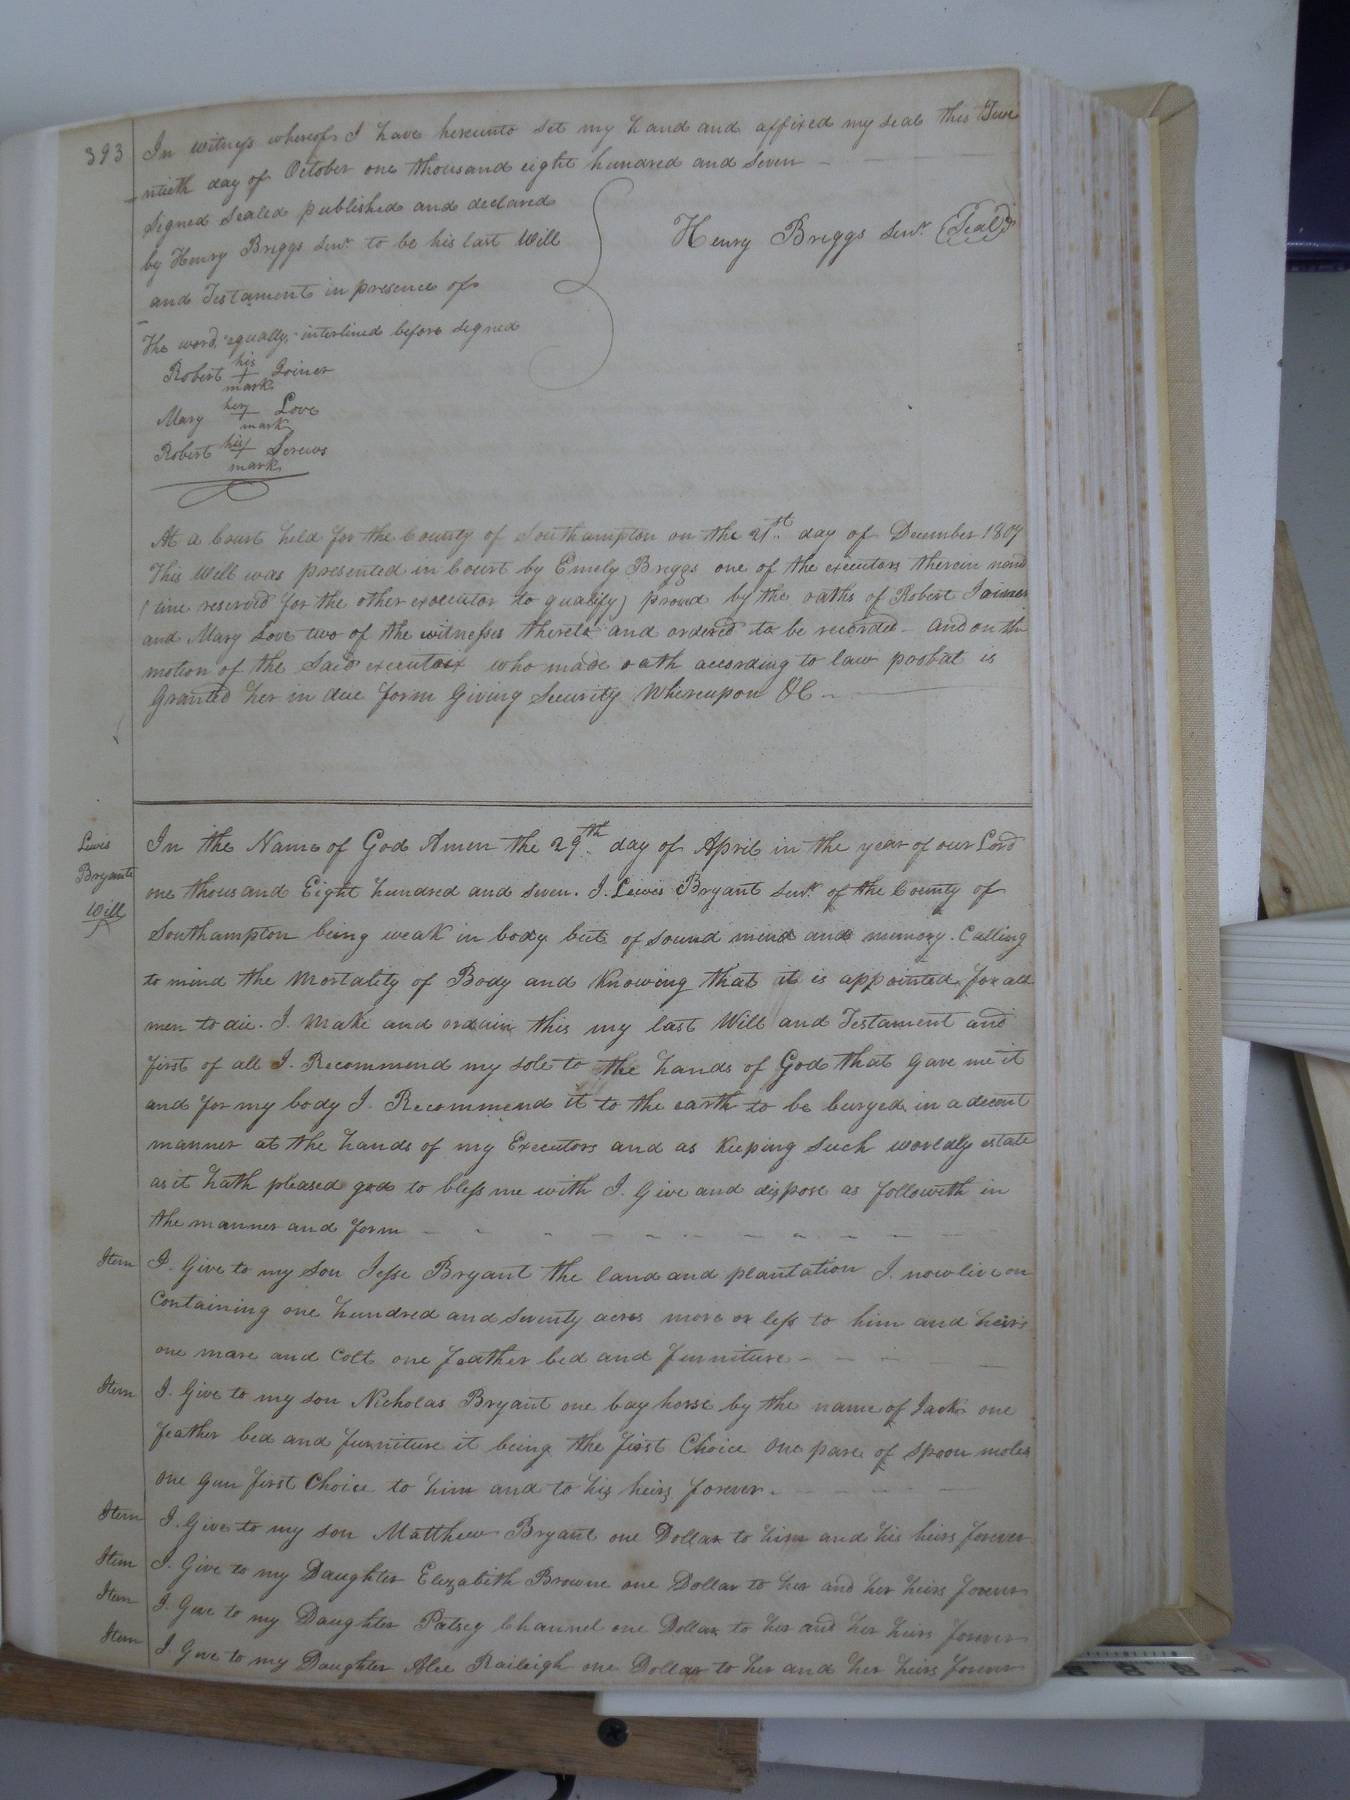 393
In witness whereof I have hereunto set my hand and affixed my seal this Twe
ntieth day of October one thousand eight hundred and seven
Signed Sealed published and declared
by Henry Briggs Senr. to be his last Will
and Testament in presence of
Henry Briggs Senr. (Seal)
The word "equally" interlined before signed
Robert his + mark Joiner
Mary her + mark Love
Robert his + mark Screws
At a Court held for the County of Southampton on the 21st. day of December 1807
This Will was presented in Court by Emely Briggs one of the executors therein namd
(time reservd for the other executor to qualify) provd by the oaths of Robert Joiner
and Mary Love two of the witnesses thereto and ordered to be recorded - And on the
motion of the Said executrix who made oath according to law probat is
Granted her in due form Giving Security Whereupon &C -
Lewis
Bryants
Will
In the Name of God Amen the 29th. day of April in the year of our Lord
one thousand Eight hundred and seven. I. Lewis Bryant Senr. of the County of
Southampton being weak in body but of sound mind and memory. Calling
to mind the Mortality of Body and Knowing that it is appointed for all
men to die. I. Make and ordain this my last Will and Testament and
first of all I. Recommend my sole to the hands of God that Gave me it
and for my body I. Recommend it to the earth to be buryed in a decent
manner at the hands of my Executors and as Keeping such worldly estate
as it hath pleased god to bless me with I. Give and dispose as followith in
the manner and form
Item I. Give to my Son Jesse Bryant the land and plantation I. now live on
Containing one hundred and seventy acres more or less to him and heirs
one mare and Colt one feather bed and furniture -
Item I. Give to my son Nicholas Bryant one bay horse by the name of Jack one
feather bed and furniture it being the first Choice One pare of Spoon moles
one gun first Choice to him and to his heirs forever.
Item I. Give to my son Matthew Bryant one Dollar to him and his heirs forever
Item I. Give to my Daughter Elizabeth Browne one Dollar to her and her heirs forever
Item I. Give to my Daughter Patsey Channel one Dollar to her and her heirs forever
Item I. Give to my Daughter Alce Raileigh one Dollar to her and her heirs forever